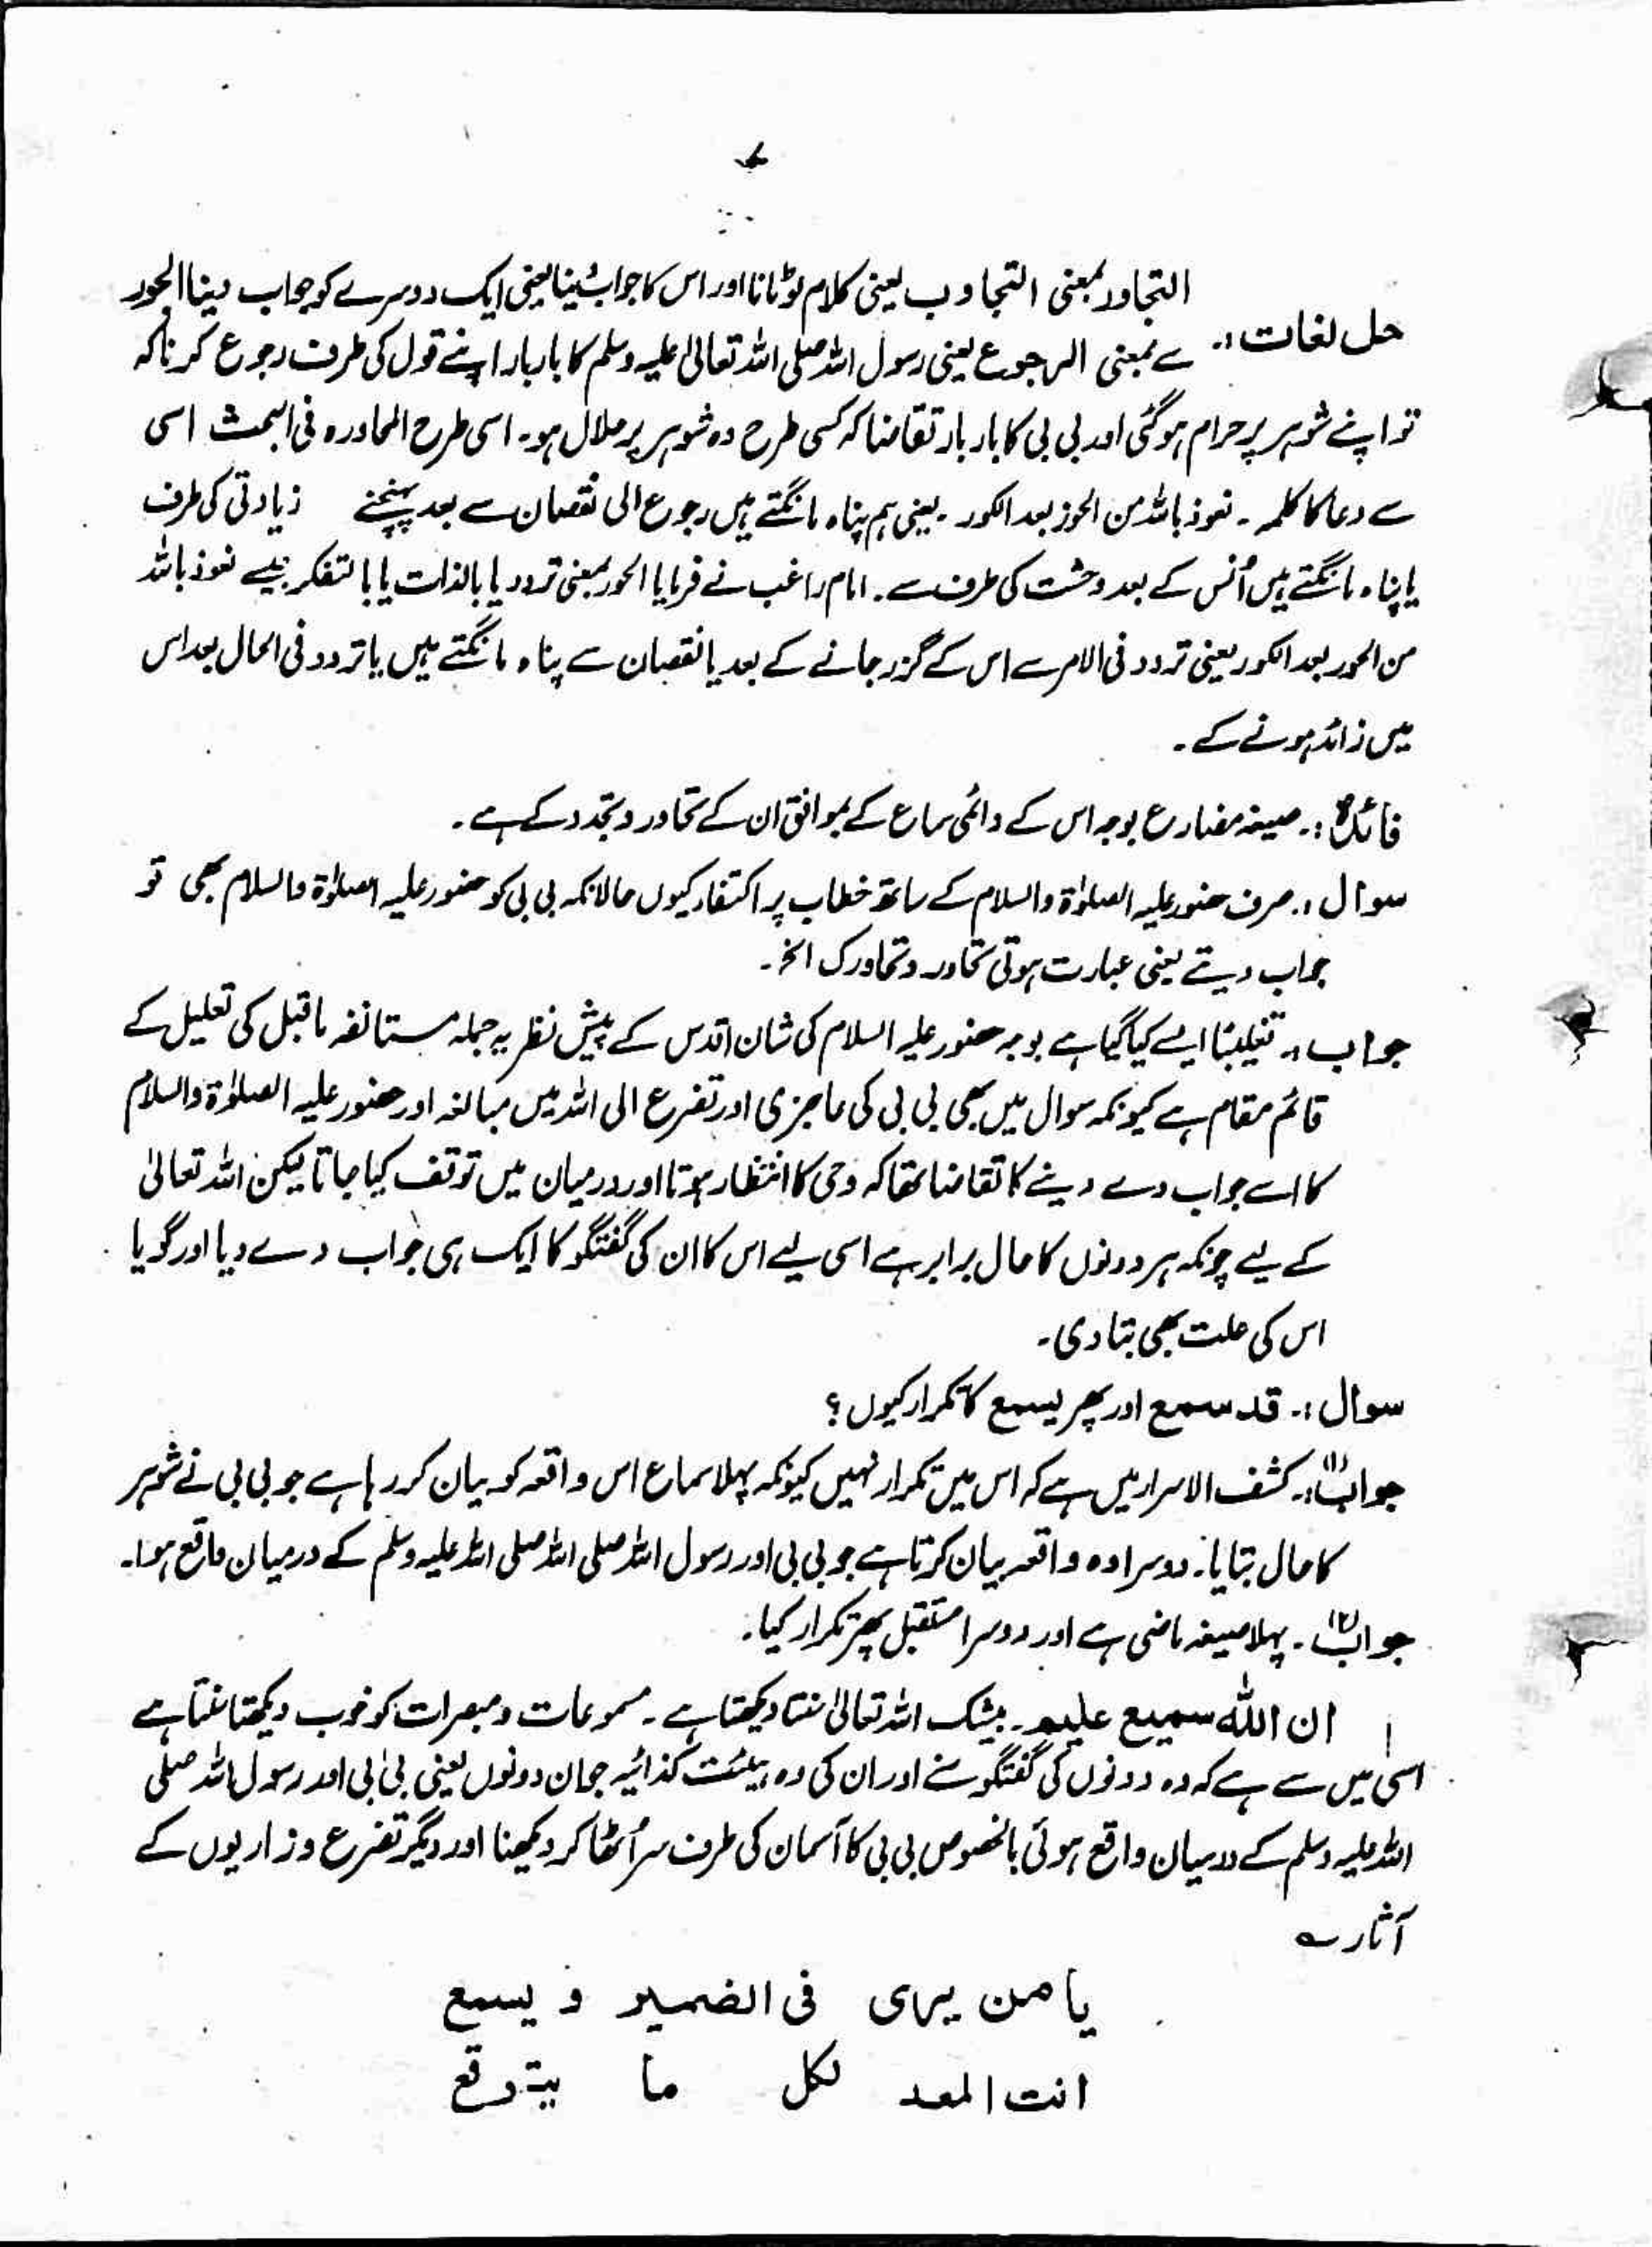 ۷
التحاور بمعنی التجاوب یعنی کلام لوٹانا اور اس کا جواب دینا یعنی ایک دوسرے کو جواب دینا الحور
حل لغات :۔ سے بمعنی الرجوع یعنی رسول اللہ صلی اللہ تعالیٰ علیہ وسلم کا بار بار اپنے قول کی طرف رجوع کرنا کہ
تو اپنے شوہر پر حرام ہوگئی اور بی بی کا بار بار تقاضا کہ کسی طرح وہ شوہر پر حلال ہو۔ اسی طرح المحاورہ فی البحث اسی
سے دعا کا کلمہ ۔ نعوذ باللہ من الحوز بعد الکور ۔ یعنی ہم پناہ مانگتے ہیں رجوع الی نقصان سے بعد پہنچنے زیادتی کی طرف
یا پناہ مانگتے ہیں اُنس کے بعد وحشت کی طرف سے ۔ امام راغب نے فرمایا الحور بمعنی تردد یا بالذات یا بالتفکر جیسے نعوذ باللہ
من الحور بعد الکور یعنی تردد فی الامر سے اس کے گزر جانے کے بعد یا نقصان سے پناہ مانگتے ہیں یا تردد فی الحال بعد اس
میں زائد ہونے کے ۔
فائدہ :۔ صیغہ مضارع بوجہ اس کے دائمی سماع کے بموافق ان کے تحاور و تجدد کے ہے ۔
سوال :۔ صرف حضور علیہ الصلوٰۃ والسلام کے ساتھ خطاب پر اکتفاء کیوں حالانکہ بی بی کو حضور علیہ الصلوٰۃ والسلام بھی تو
جواب دیتے یعنی عبارت ہوتی تحاور و تحاورک الخ ۔
جواب :۔ تغلیبًا ایسے کیا گیا ہے بوجہ حضور علیہ السلام کی شان اقدس کے پیش نظر یہ جملہ مستانفہ ماقبل کی تعلیل کے
قائم مقام ہے کیونکہ سوال میں بھی بی بی کی عاجزی اور تضرع الی اللہ میں مبالغہ اور حضور علیہ الصلوٰۃ والسلام
کا اسے جواب دے دینے کا تقاضا تھا کہ وحی کا انتظار ہوتا اور درمیان میں توقف کیا جاتا لیکن اللہ تعالیٰ
کے لیے چونکہ ہر دونوں کا حال برابر ہے اسی لیے اس کا ان کی گفتگو کا ایک ہی جواب دے دیا اور گویا
اس کی علت بھی بتا دی ۔
سوال :۔ قد سمع اور پھر یسمع کا تکرار کیوں ؟
جواب (۱) :۔ کشف الاسرار میں ہے کہ اس میں تکرار نہیں کیونکہ پہلا سماع اس واقعہ کو بیان کر رہا ہے جو بی بی نے شوہر
کا حال بتایا ۔ دوسرا وہ واقعہ بیان کرتا ہے جو بی بی اور رسول اللہ صلی اللہ صلی اللہ علیہ وسلم کے درمیان واقع ہوا ۔
جواب (۲) ۔ پہلا صیغہ ماضی ہے اور دوسرا مستقبل پھر تکرار کیا ۔
ان اللہ سمیع علیم ۔ بیشک اللہ تعالیٰ سنتا دیکھتا ہے ۔ مسموعات و مبصرات کو خوب دیکھتا سنتا ہے
اسی میں سے ہے کہ وہ دونوں کی گفتگو سنے اور ان کی وہ ہیئت کذائیہ جو ان دونوں یعنی بی بی اور رسول اللہ صلی
اللہ علیہ وسلم کے درمیان واقع ہوئی بالخصوص بی بی کا آسمان کی طرف سر اُٹھا کر دیکھنا اور دیگر تضرع و زاریوں کے
آثار ؎
یا من یری فی الضمیر و یسمع
انت المعد لکل ما یتوقع